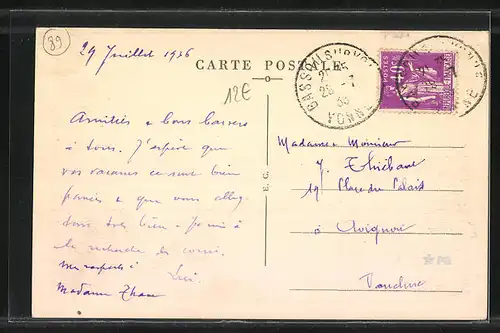 89
29 Juillet 1936
CARTE POSTALE
12€
BASSOU SUR YONNE
YONNE
POSTES
40c
Amitiés & bons baisers
à tous. J'espère que
vos vacances se sont bien
passées & que vous allez
tous très bien.
à
la recherche du
Mes respects à
Luci
Madame
E. C.
Madame & Monsieur
J. Thiébaut
19 Place du Palais
à Avignon
Vaucluse